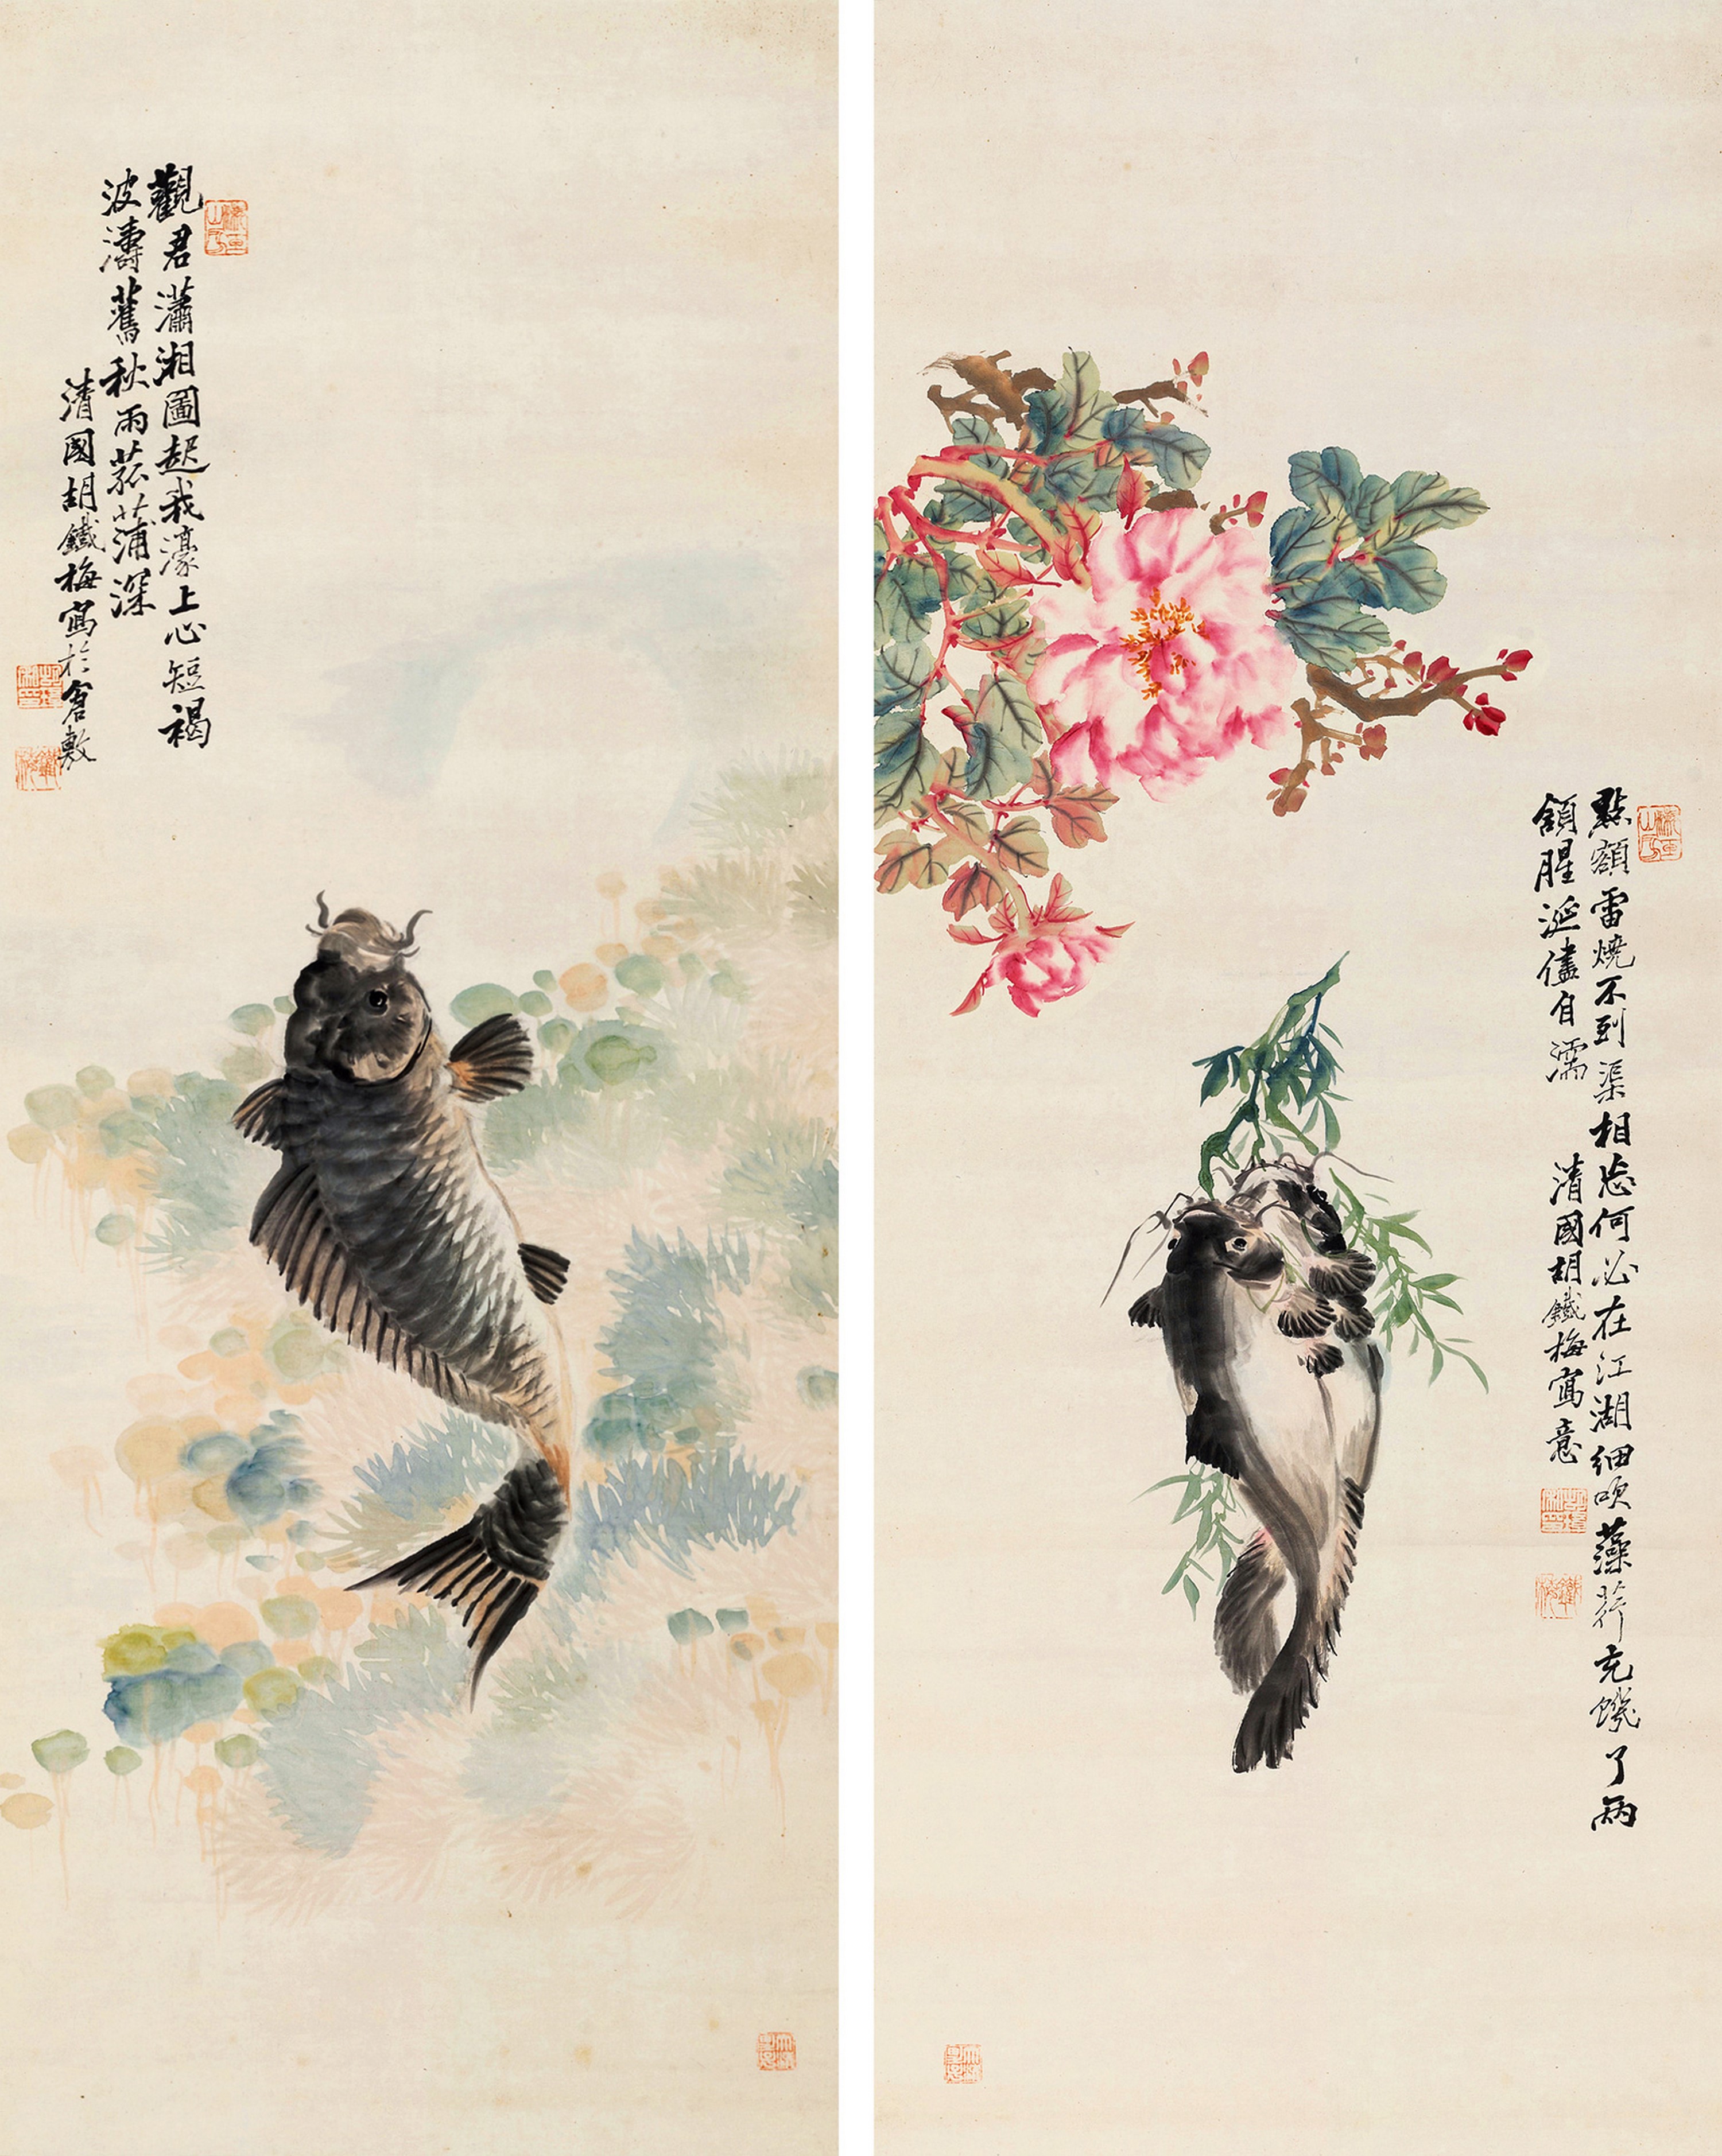 觀君瀟湘圖起我濠上心短褐
波濤舊秋雨菰蒲深
清國胡鐵梅寫於倉敷
點額雷燒不到渠相忘何必在江湖細吹藻荇充饑了兩
頷腥涎儘自濡
清國胡鐵梅寫意